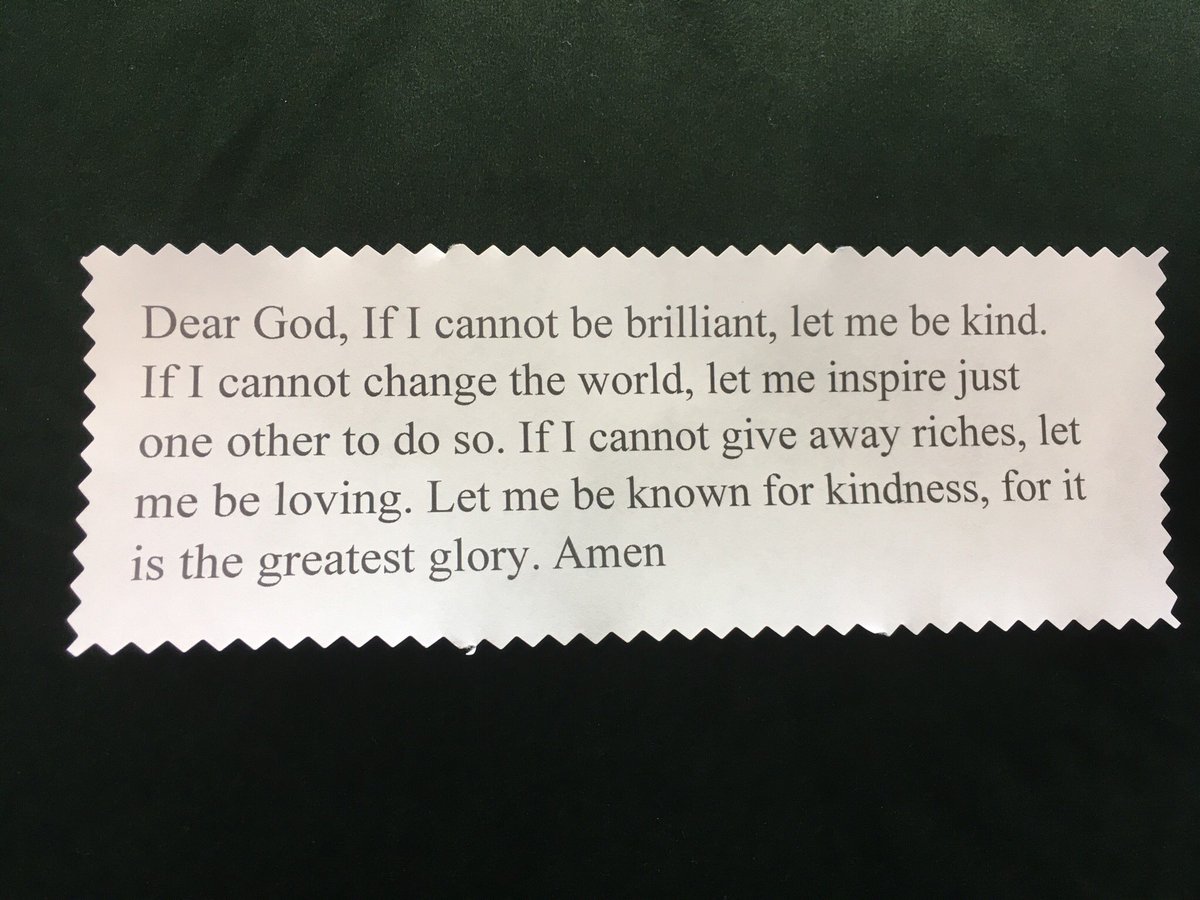 Dear God, If I cannot be brilliant, let me be kind.
If I cannot change the world, let me inspire just
one other to do so. If I cannot give away riches, let
me be loving. Let me be known for kindness, for it
is the greatest glory. Amen